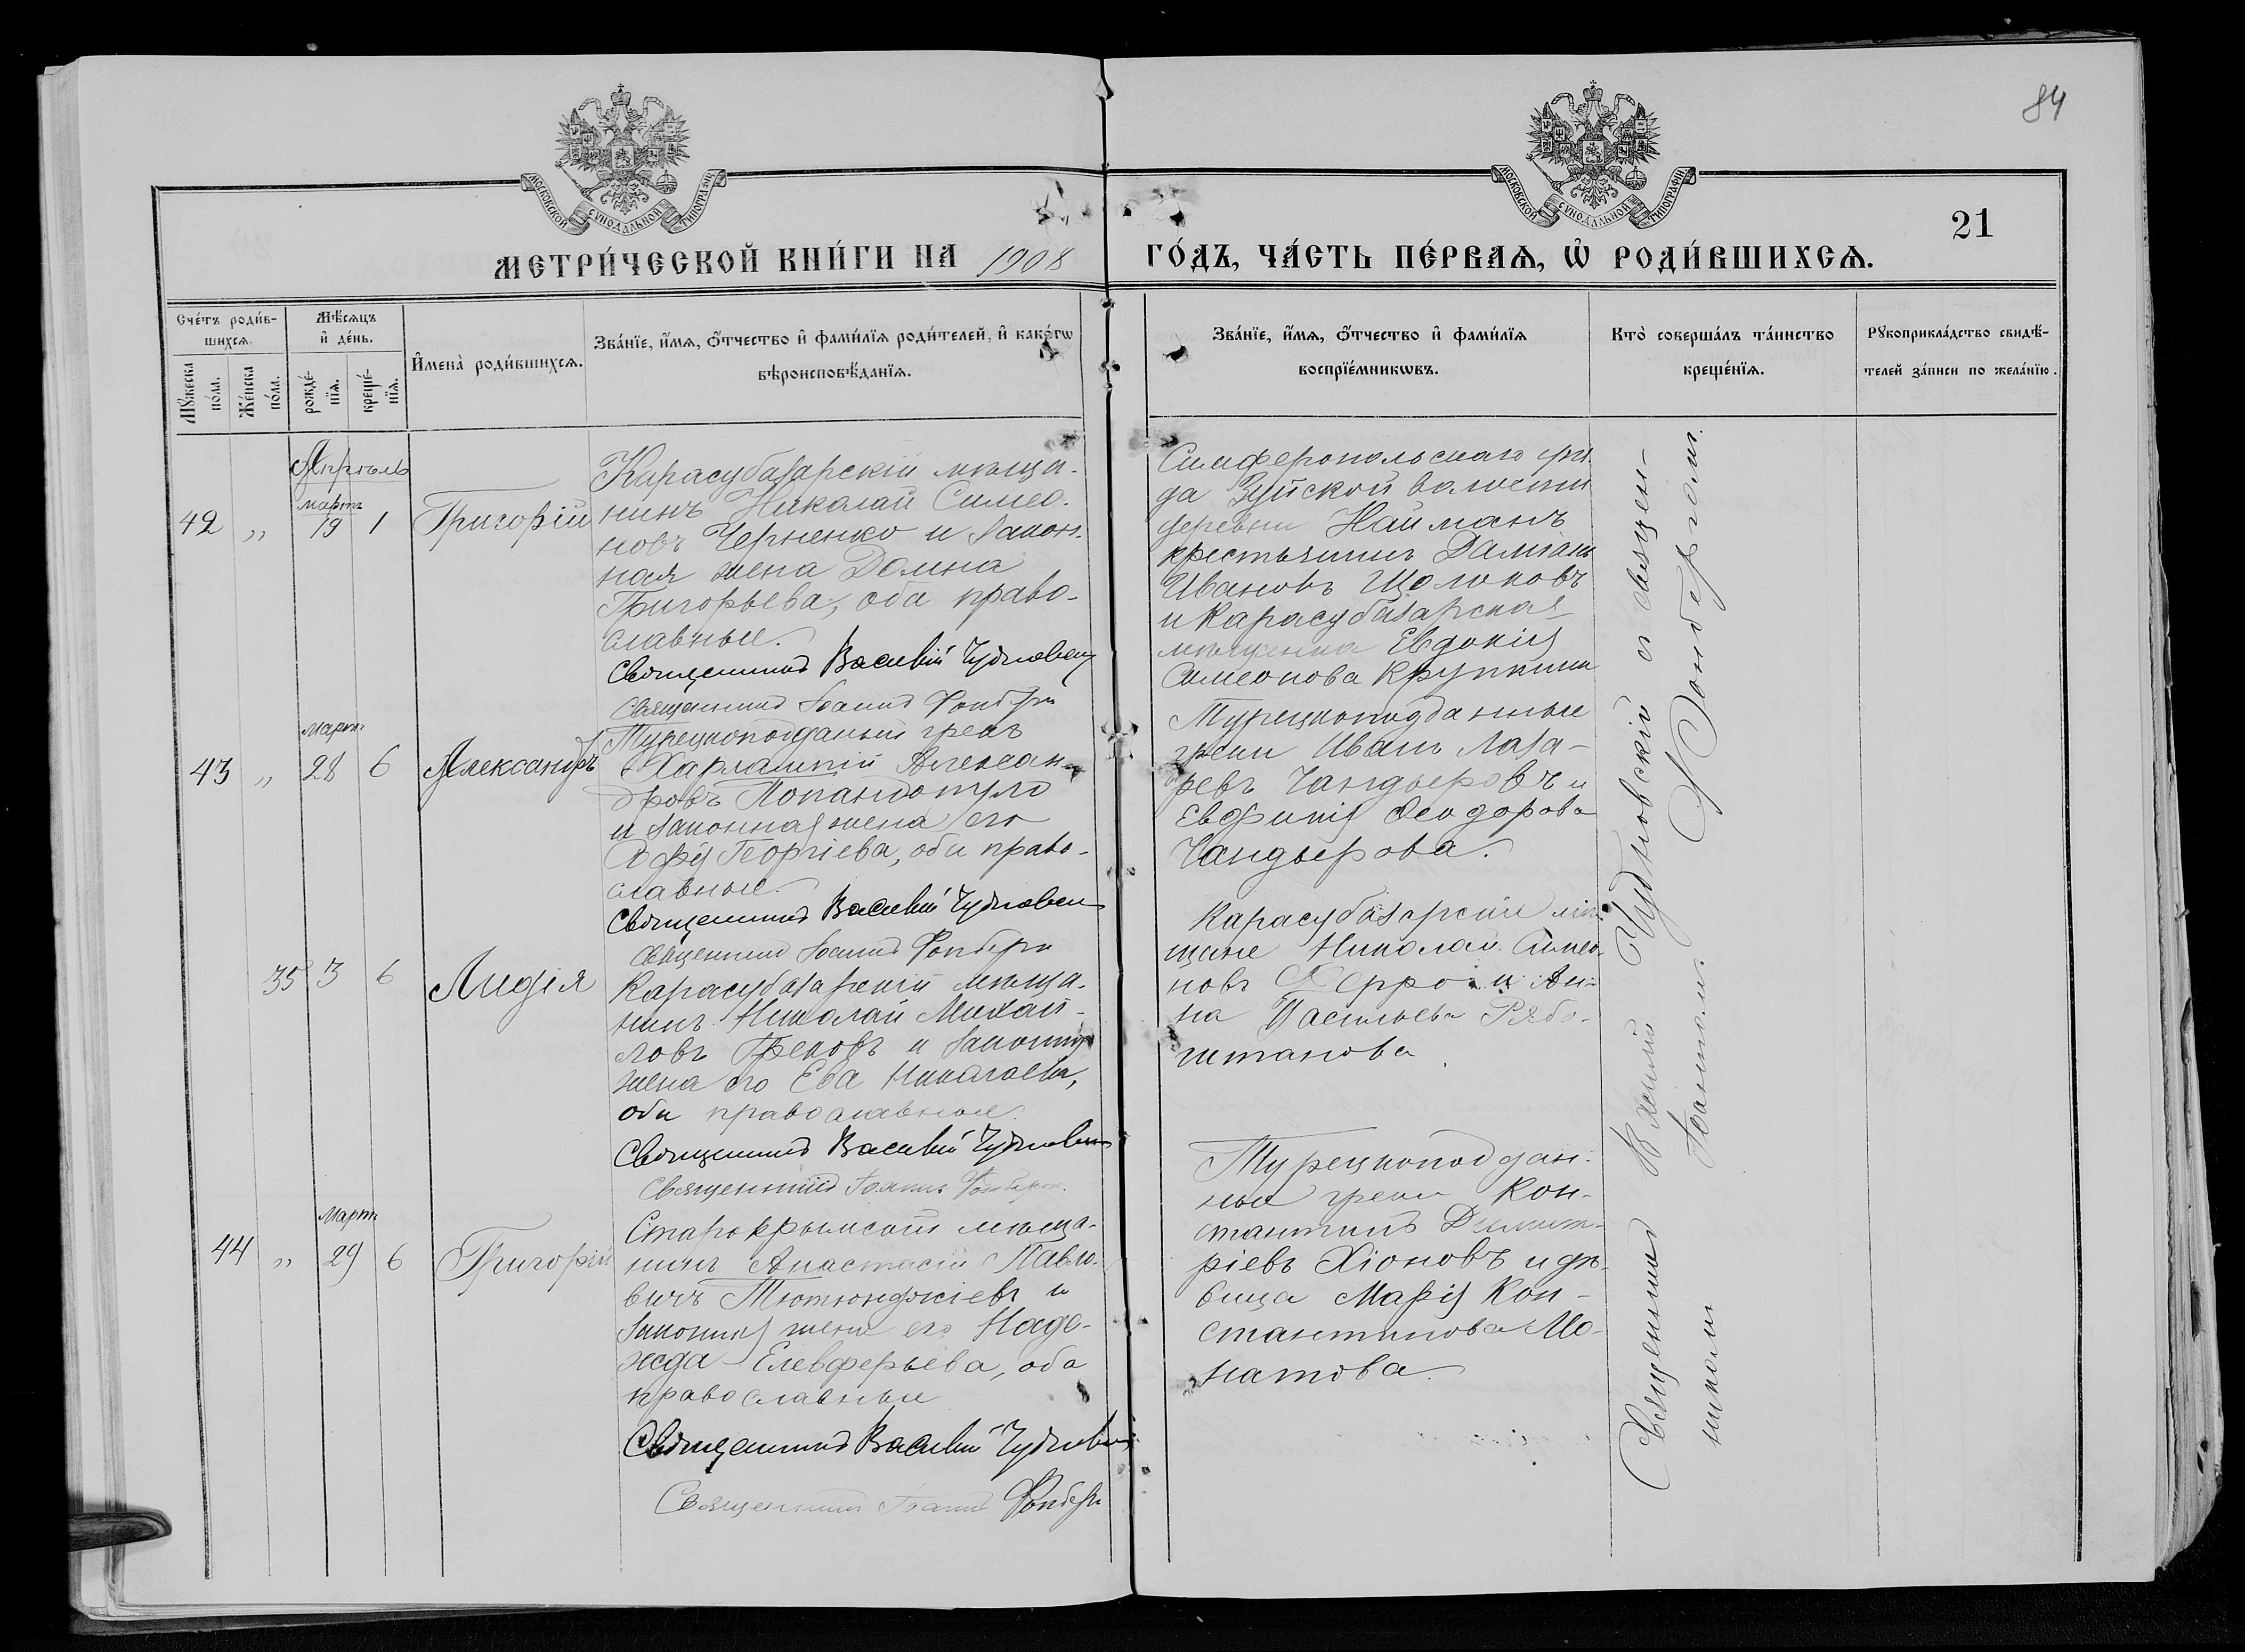 84
МОСКОВСКОЙ СѴНОДАЛЬНОЙ ТИПОГРАФІИ
МОСКОВСКОЙ СѴНОДАЛЬНОЙ ТИПОГРАФІИ
21
МЕТРИ́ЧЕСКОЙ КНИ́ГИ НА 1908 ГО́ДЪ, ЧА́СТЬ ПЕ́РВАѦ, Ѡ҆ РОДИ́ВШИХСѦ.
Сче́тъ роди́в-
шихсѧ.
Мѣ́сѧцъ
и҆ де́нь.
Мꙋ́жеска
по́ла.
Же́нска
по́ла.
рожде́-
нїѧ.
креще́-
нїѧ.
И҆мена̀ роди́вшихсѧ.
Зва́нїе, и҆́мѧ, ѻ҆́тчество и҆ фами́лїѧ роди́телей, и҆ како́гѡ
вѣроисповѣ́данїѧ.
Зва́нїе, и҆́мѧ, ѻ҆́тчество и҆ фами́лїѧ
воспрїе́мникѡвъ.
Кто̀ соверша́лъ та́инство
креще́нїѧ.
Рꙋкоприкла́дство свидѣ́-
телей за́писи по жела́нїю.
Апрѣль
мартъ
42 „ 19 1 Григорій
Карасубазарскій мѣща-
нинъ Николай Симео-
новъ Черненко и закон-
ная жена Домна
Григорьева, оба право-
славные.
Священникъ Василій Чудновскій
Священникъ Іоаннъ Фонберг
Симферопольскаго уѣз-
да Зуйской волости
деревни Найманъ
крестьянинъ Даміанъ
Ивановъ Щолоковъ
и Карасубазарская
мѣщанка Евдокія
Симеонова Крупкина
март
43 „ 28 6 Александръ
Турецкоподданый грекъ
Харлампій Алексан-
дровъ Попандопуло
и законная жена его
Софія Георгіева, оба право-
славные.
Священникъ Василій Чудновскій
Священникъ Іоаннъ Фонберг
Турецкоподданные
греки Иванъ Лаза-
ревъ Чандыеровъ и
Евфимія Ѳеодорова
Чандыерова.
35 3 6 Лидія
Карасубазарскій мѣща-
нинъ Николай Михай-
ловъ Грековъ и законная
жена его Ева Николаева,
оба православные.
Священникъ Василій Чудновскій
Священникъ Іоаннъ Фонберг
Карасубазарскіе мѣ-
щане Николай Симео-
новъ Ферро и Ан-
на Васильева Рябо-
штанова
март
44 „ 29 6 Григорій
Старокрымскій мѣща-
нинъ Анастасій Павло-
вичъ Тютюнджіевъ и
законная жена его Наде-
жда Елевферьева, оба
православные
Священникъ Василій Чудновскій
Священникъ Іоаннъ Фонберг
Турецкоподдан-
ные греки Кон-
стантинъ Димит-
ріевъ Хіоновъ и дѣ-
вица Марія Кон-
стантинова Мо-
натова.
Священникъ Василій Чудновскій съ священ-
никомъ Іоанномъ Фонбергомъ.